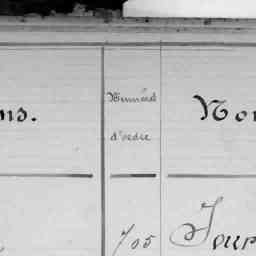 ns.
Numéros
d'ordre
No
705
Jour